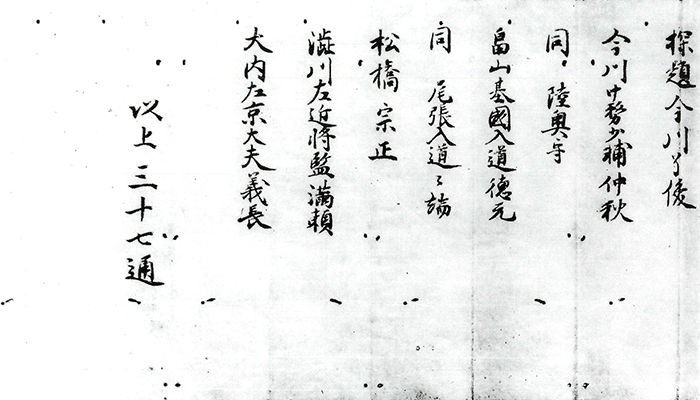 探題今川了俊
今川中務少輔仲秋
同 陸奥守
畠山基國入道徳元
同 尾張入道々端
松橋宗正
澁川左近将監満頼
大内左京大夫義長
以上三十七通